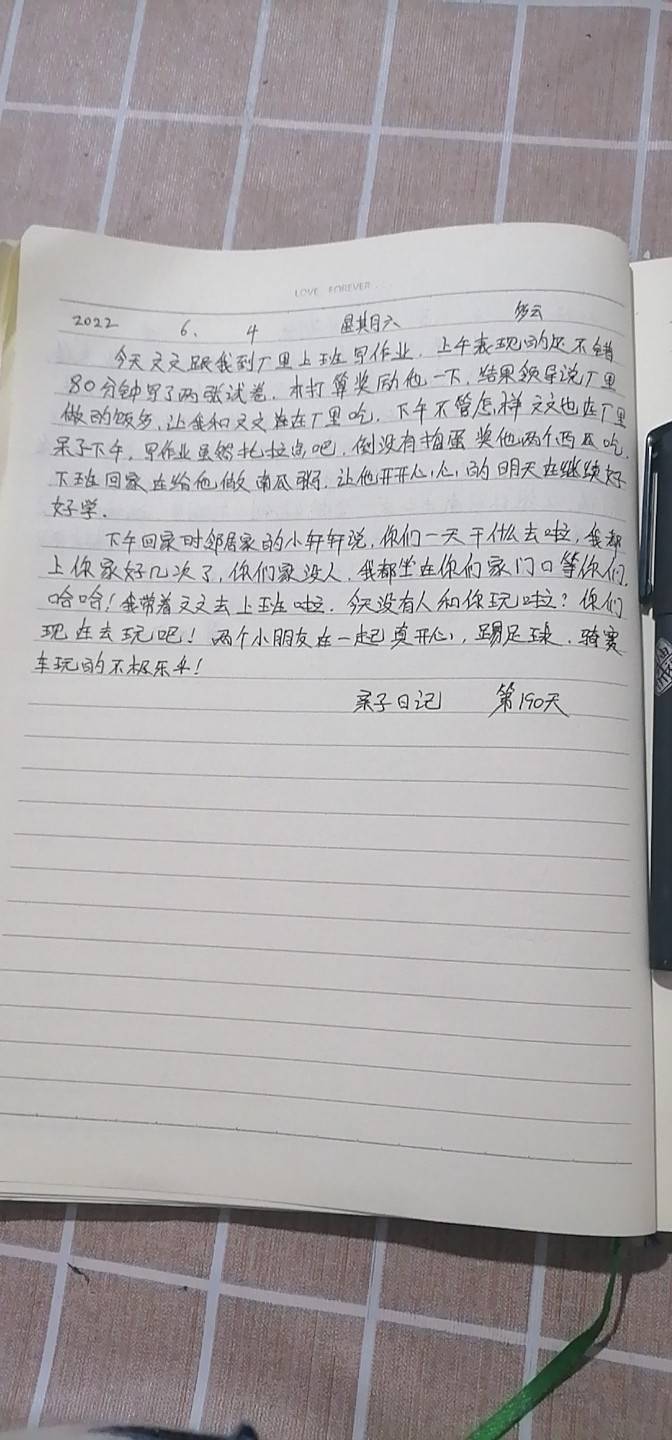 LOVE FOREVER
2022 6、 4 星期六 多云
今天文文跟我到厂里上班写作业，上午表现的还不错
80分钟写了两张试卷，本打算奖励他一下，结果领导说厂里
做的饭多，让我和文文在厂里吃，下午不管怎样文文也在厂里
呆了下午，写作业虽然拉点吧，倒没有捣蛋奖他两个西瓜吃，
下班回家在给他做南瓜粥，让他开开心心的明天在继续好
好学．
下午回家时邻居家的小轩轩说，你们一天干什么去啦，我都
上你家好几次了，你们家没人，我都坐在你们家门口等你们，
哈哈！我带着文文去上班啦．今天没有人和你玩啦？你们
现在去玩吧！两个小朋友在一起真开心，踢足球．骑赛
车玩的不极乐乎！
亲子日记 第190天